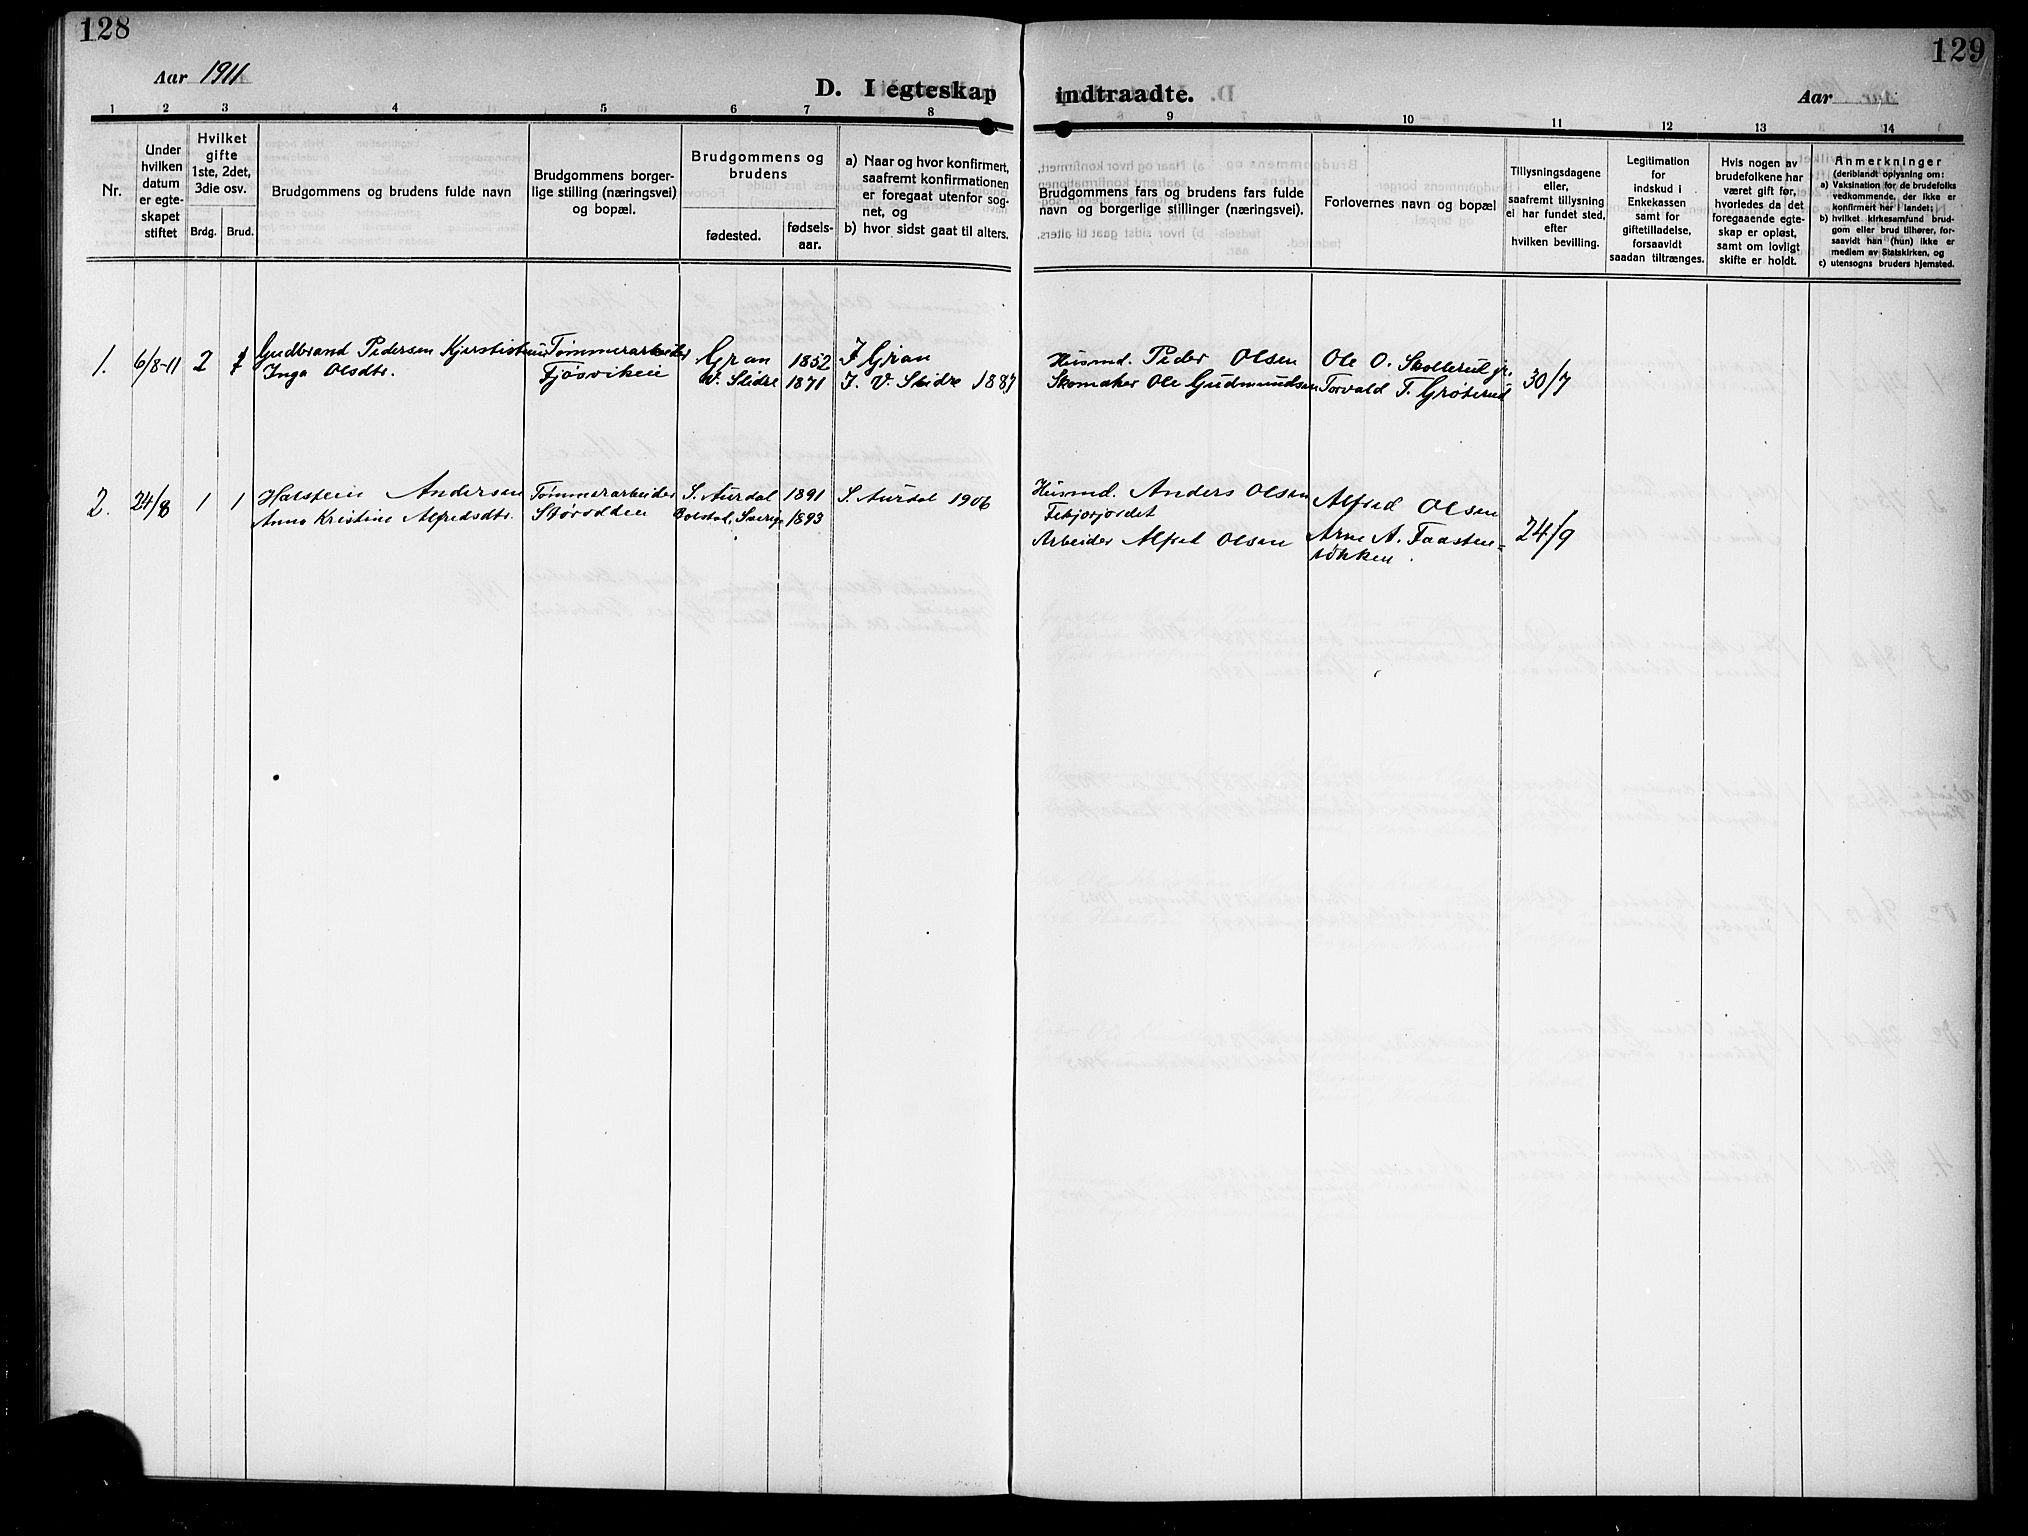 128
Aar 1911
D. I egteskap
1 2 3 4 5 6 7 8
Nr.
Under hvilken datum er egteskapet stiftet
Hvilket gifte 1ste, 2det, 3die osv.
Brdg. Brud.
Brudgommens og brudens fulde navn
Brudgommens borgerlige stilling (næringsvei) og bopæl.
Brudgommens og brudens
fødested.
fødselsaar.
a) Naar og hvor konfirmert, saafremt konfirmationen er foregaat utenfor sognet, og
b) hvor sidst gaat til alters.
1. 6/8-11 2 Gudbrand Pedersen Tømmerarbeider Gran 1852 I Gran
Inga Olsdtr. Fjøsvikeie V. Slidre 1871 I. V. Slidre 1887
2. 24/8 1 1 Halstein Andersen Tømmerarbeider S. Aurdal 1891 S. Aurdal 1906
Anna Kristine Alfredsdtr. Storodden Sverige 1893
129
indtraadte.
Aar
9 10 11 12 13 14
Brudgommens fars og brudens fars fulde navn og borgerlige stillinger (næringsvei).
Forlovernes navn og bopæl
Tillysningsdagene eller, saafremt tillysning ei har fundet sted, efter hvilken bevilling.
Legitimation for indskud i Enkekassen samt for giftetilladelse, forsaavidt saadan tiltrænges.
Hvis nogen av brudefolkene har været gift før, hvorledes da det foregaaende egteskap er opløst, samt om lovligt skifte er holdt.
Anmerkninger
(deriblandt oplysning om:
a) Vaksination for de brudefolks vedkommende, der ikke er konfirmert her i landet;
b) hvilket kirkesamfund brudgom eller brud tilhører, forsaavidt han (hun) ikke er medlem av Statskirken, og
c) utensogns bruders hjemsted.
Husmd. Peder Olsen Ole O. Skollerud jr.
Skomaker Ole Gudmundsen Torvald T. Grøterud 30/7
Husmd. Anders Olsen Alfred Olsen
Febjorjordet
Arbeider Alfred Olsen Arne A. Faasten= 24/9
løkken.